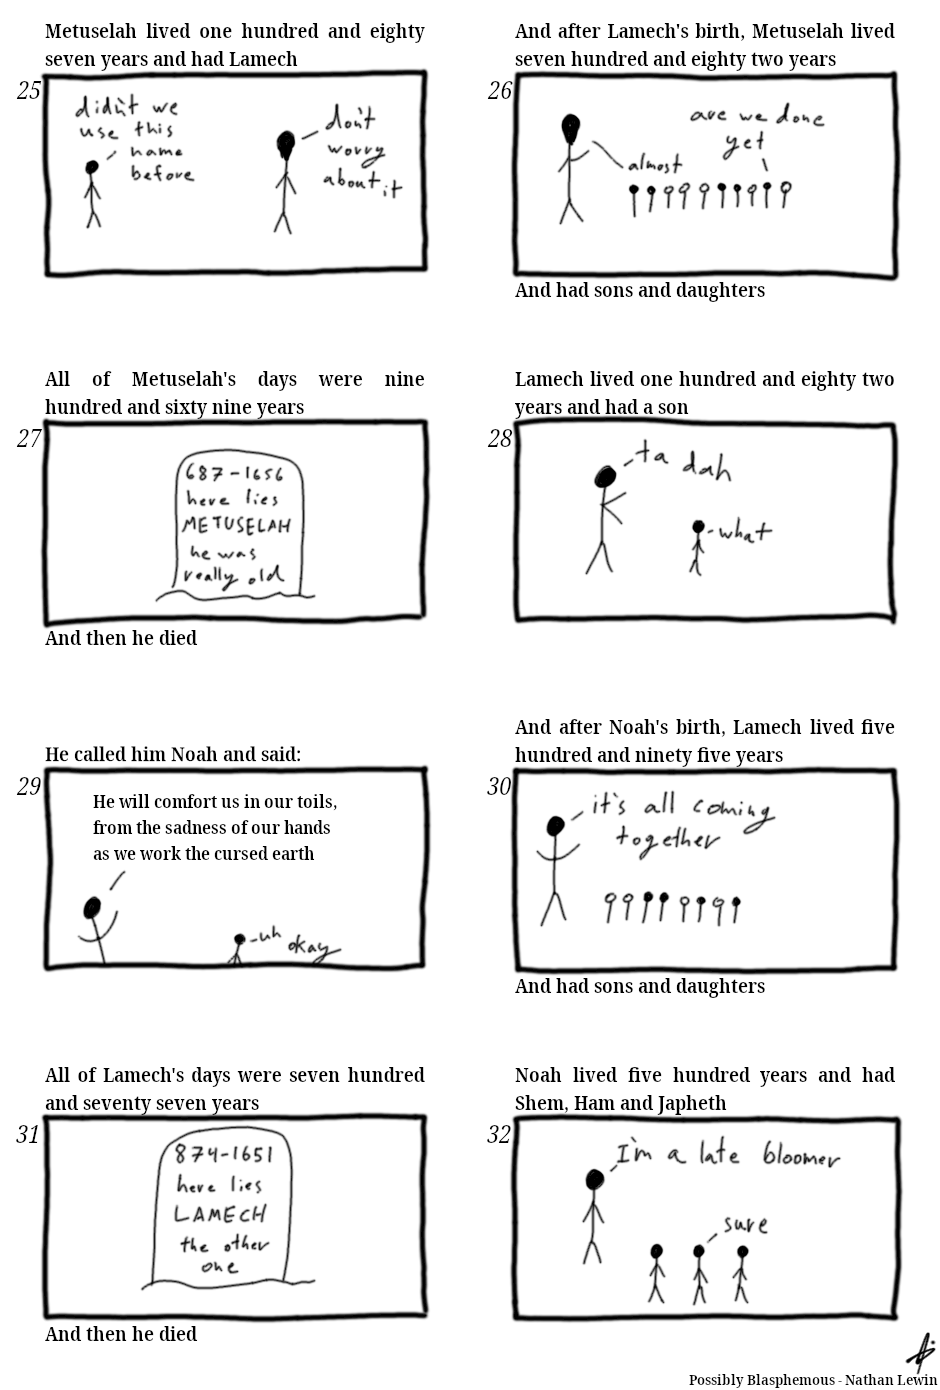 Metuselah lived one hundred and eighty
seven years and had Lamech
25
didn't we
use this
name
before
don't
worry
about it
And after Lamech's birth, Metuselah lived
seven hundred and eighty two years
26
almost
are we done
yet
And had sons and daughters
All of Metuselah's days were nine
hundred and sixty nine years
27
687-1656
here lies
METUSELAH
he was
really old
And then he died
Lamech lived one hundred and eighty two
years and had a son
28
ta dah
what
He called him Noah and said:
29
He will comfort us in our toils,
from the sadness of our hands
as we work the cursed earth
uh okay
And after Noah's birth, Lamech lived five
hundred and ninety five years
30
it's all coming
together
And had sons and daughters
All of Lamech's days were seven hundred
and seventy seven years
31
874-1651
here lies
LAMECH
the other
one
And then he died
Noah lived five hundred years and had
Shem, Ham and Japheth
32
I'm a late bloomer
sure
Possibly Blasphemous - Nathan Lewin